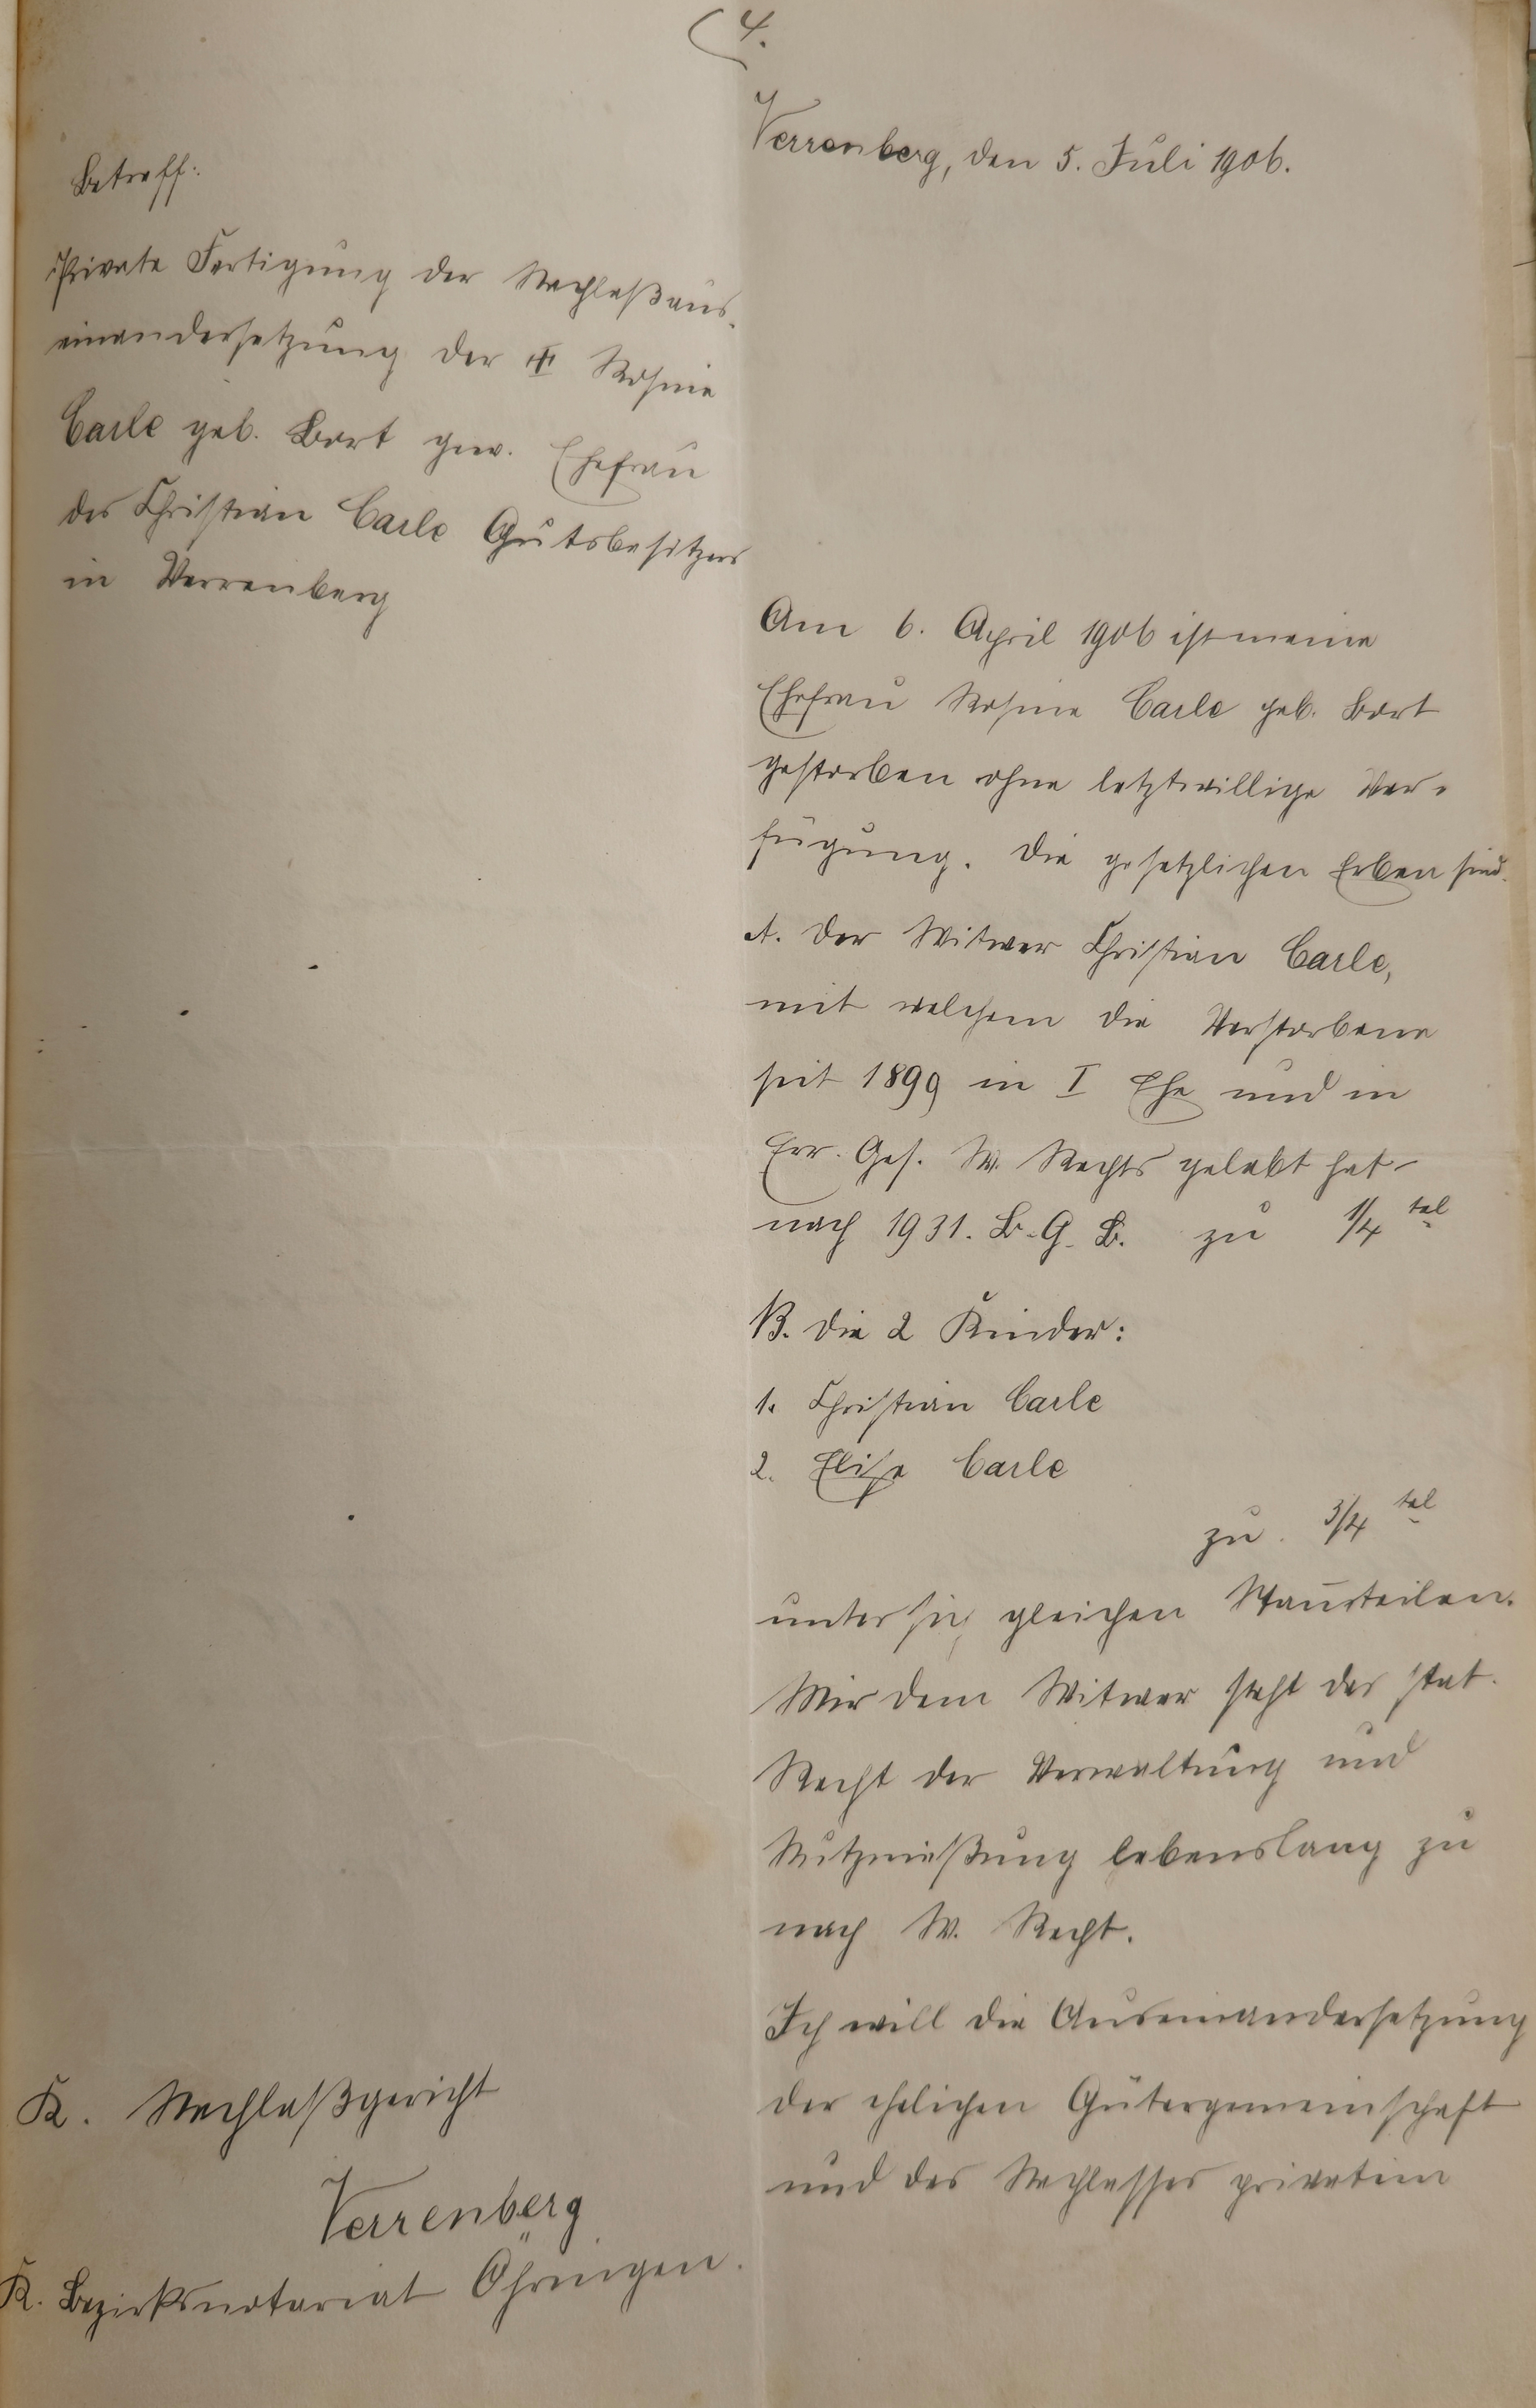 4.
Verrenberg, den 5. Juli 1906.
Betreff:
Private Fertigung der Nachlaßaus-
einandersetzung der † Rosine
Carle geb. Bort gew. Ehefrau
des Christian Carle Gutsbesitzers
in Verrenberg
Am 6. April 1906 ist meine
Ehefrau Rosine Carle geb. Bort
gestorben ohne letztwillige Ver-
fügung. Die gesetzlichen Erben sind.
A. der Witwer Christian Carle,
mit welchem die Verstorbene
seit 1899 in I Ehe und in
Err. Ges. W. Rechts gelebt hat
nach 1931. B. G. B. zu 1/4 tel
B. die 2 Kinder:
1. Christian Carle
2. Elise Carle
zu 3/4 tel
unter sich gleichen Stammteilen.
Mir dem Witwer steht das stat.
Recht der Verwaltung und
Nutznießung lebenslang zu
nach W. Recht.
Ich will die Auseinandersetzung
der ehelichen Gütergemeinschaft
und des Nachlasses privatim
K. Nachlaßgericht
Verrenberg
K. Bezirksnotariat Öhringen.